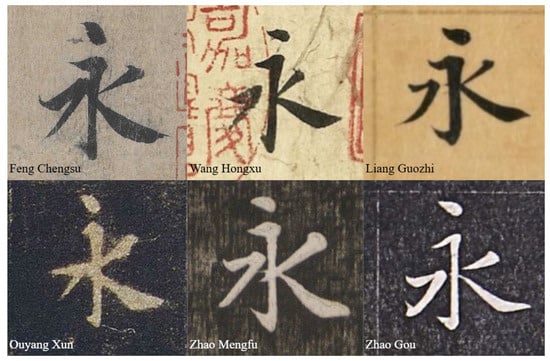 永 永 永
Feng Chengsu Wang Hongxu Liang Guozhi
永 永 永
Ouyang Xun Zhao Mengfu Zhao Gou